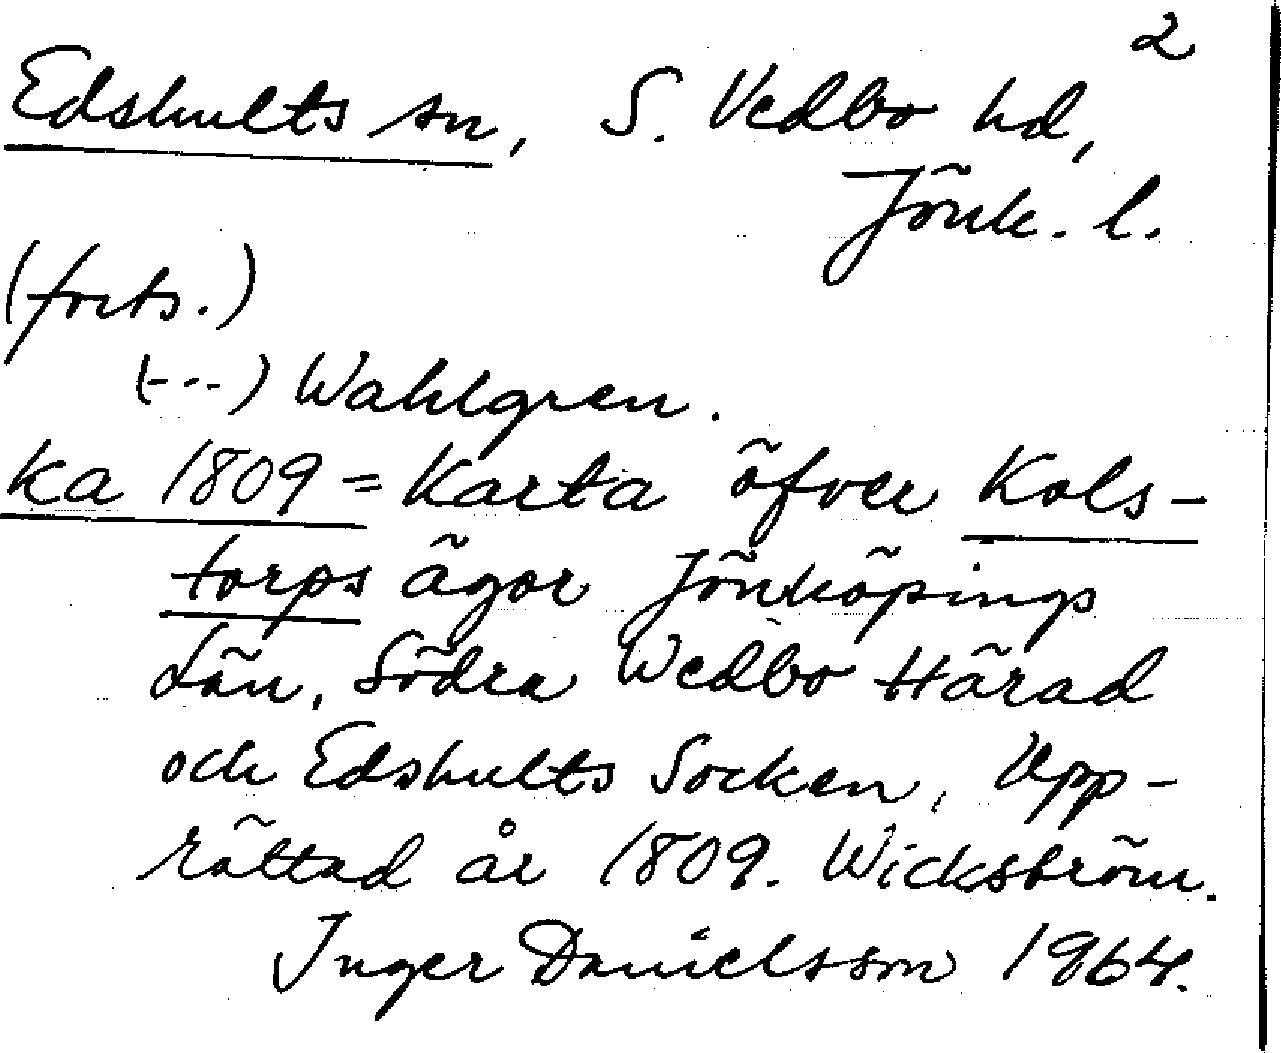 2
Edshults sn, S. Vedbo hd,
Jönk. l.
(forts.)
(---) Wahlgren.
ka 1809 = Karta öfver Kols-
torps ägor Jönköpings
Län, Södra Wedbo Härad
och Edshults Socken, Upp-
rättad år 1809. Wickström.
Inger Danielsson 1964.